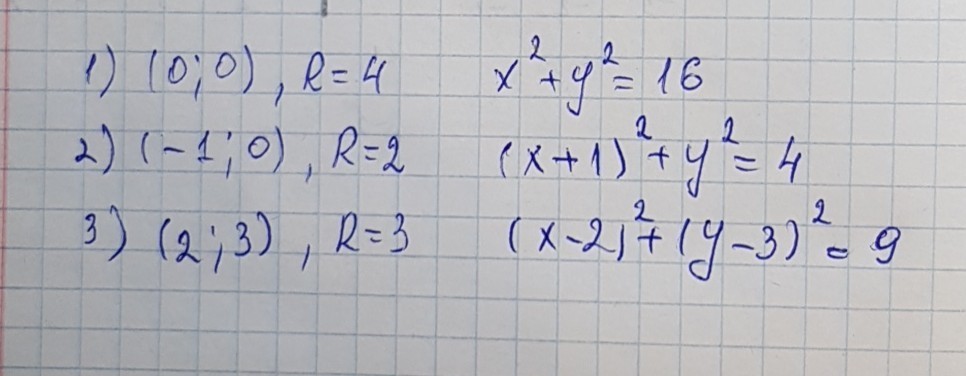 1) (0;0), R=4 x²+y²=16
2) (-1;0), R=2 (x+1)²+y²=4
3) (2;3), R=3 (x-2)²+(y-3)²=9